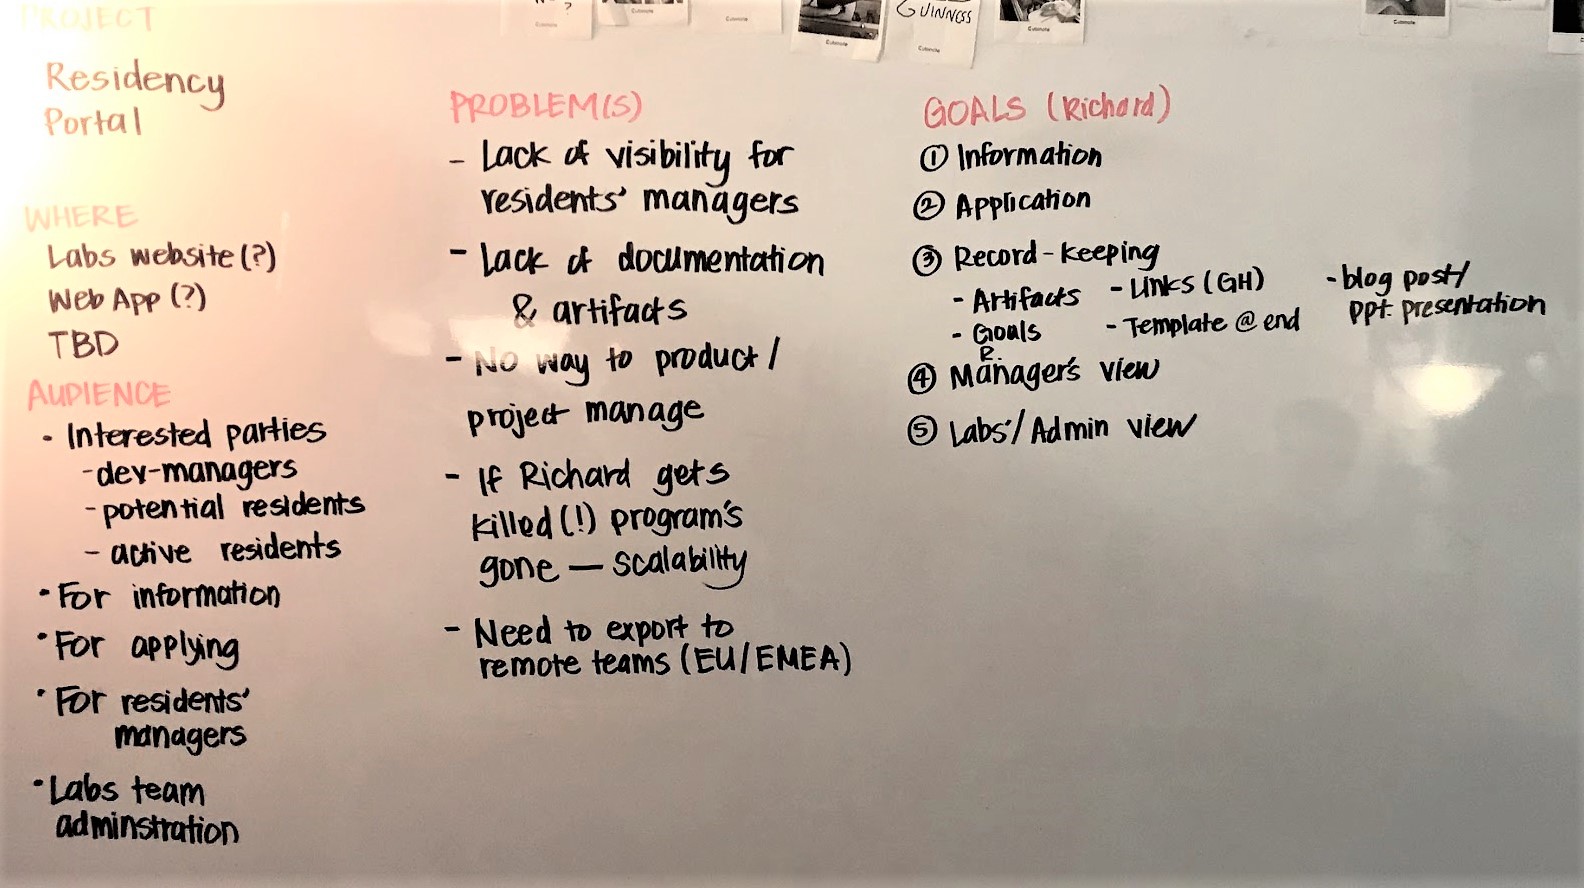 PROJECT
Residency
Portal
WHERE
Labs website (?)
Web App (?)
TBD
AUDIENCE
• Interested parties
- dev-managers
- potential residents
- active residents
• For information
• For applying
• For residents'
managers
• Labs team
adminstration
?
GUINNESS
PROBLEM(S)
- Lack of visibility for
residents' managers
- Lack of documentation
& artifacts
- No way to product /
project manage
- If Richard gets
killed (!) program's
gone — scalability
- Need to export to
remote teams (EU/EMEA)
GOALS (Richard)
① Information
② Application
③ Record-keeping
- Artifacts - Links (GH) - blog post/
- Goals - Template @ end ppt. presentation
R.
④ Manager's view
⑤ Labs'/Admin view